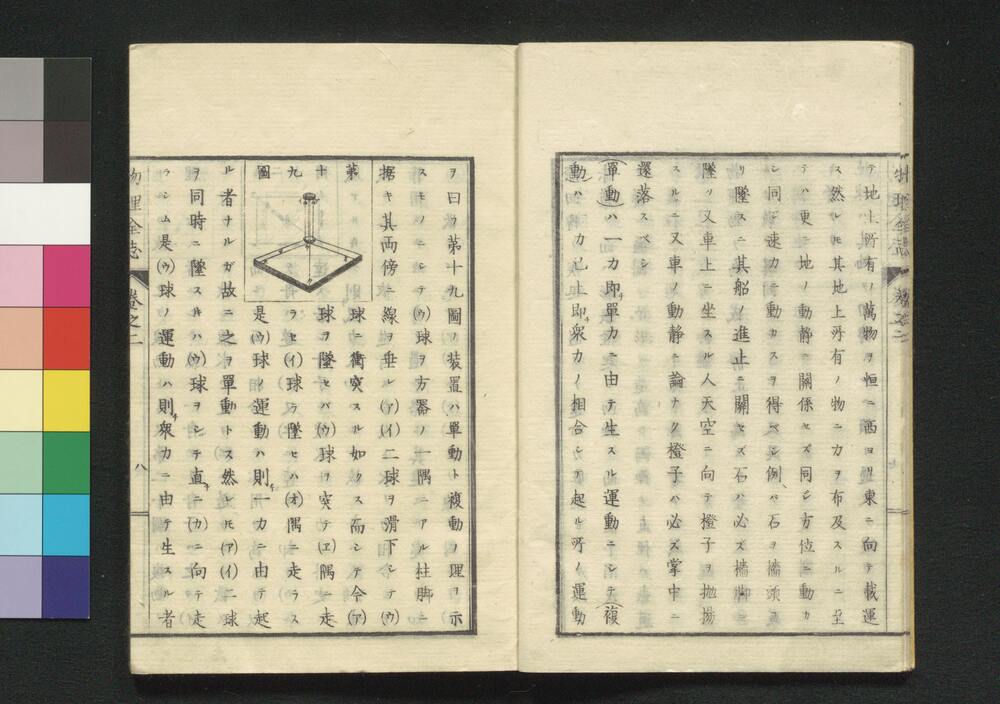 テ地上所有ノ萬物ヲ恒ニ西ヨリ東ニ向テ載運
ス然レ𪜈其地上所有ノ物ニ力ヲ布及スルニ至
テハ更ニ地ノ動静ニ關係セズ同シ方位ニ動カ
シ同ジ速力ニ動カスヲ得ベシ例ヘバ石ヲ檣頭ヨ
リ墜スニ其船ノ進止ニ關セズ石ハ必ズ檣脚ニ
墜リ又車上ニ坐スル人天空ニ向テ橙子ヲ抛揚
スルニ又車ノ動静ニ論ナク橙子ハ必ズ掌中ニ
還落スベシ
(單動)ハ一力即チ單力ニ由テ生スル運動ニシテ(複
動)ハ二力已上即チ衆力ノ相合シテ起ル所ノ運動
物理全志 卷之二
ヲ曰フ第十九圖ノ装置ハ單動ト複動ノ理ヲ示
スモノニシテ(ウ)球ヲ方器ノ一隅ニアル柱脚ニ
据キ其両傍ニ線ヲ垂レ(ア)(イ)二球ヲ滑下シテ(ウ)
第十九圖
球ニ衝突スル如クス而シテ今(ア)
球ヲ墜セバ(ウ)球ヲ突テ(エ)隅ニ走
ラセ(イ)球ヲ墜セハ(オ)隅ニ走ラス
是(ウ)球ノ運動ハ則チ一力ニ由テ起
ル者ナルガ故ニ之ヲ單動トス然レ𪜈(ア)(イ)二球
ヲ同時ニ墜スルハ(ウ)球ヲシテ直チニ(カ)ニ向テ走
ラシム是(ウ)球ノ運動ハ則チ衆力ニ由テ生スル者
物理全志 卷之二 八